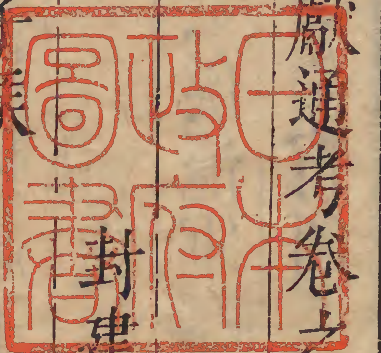 獻通考卷
封建
日本
政府
圖書